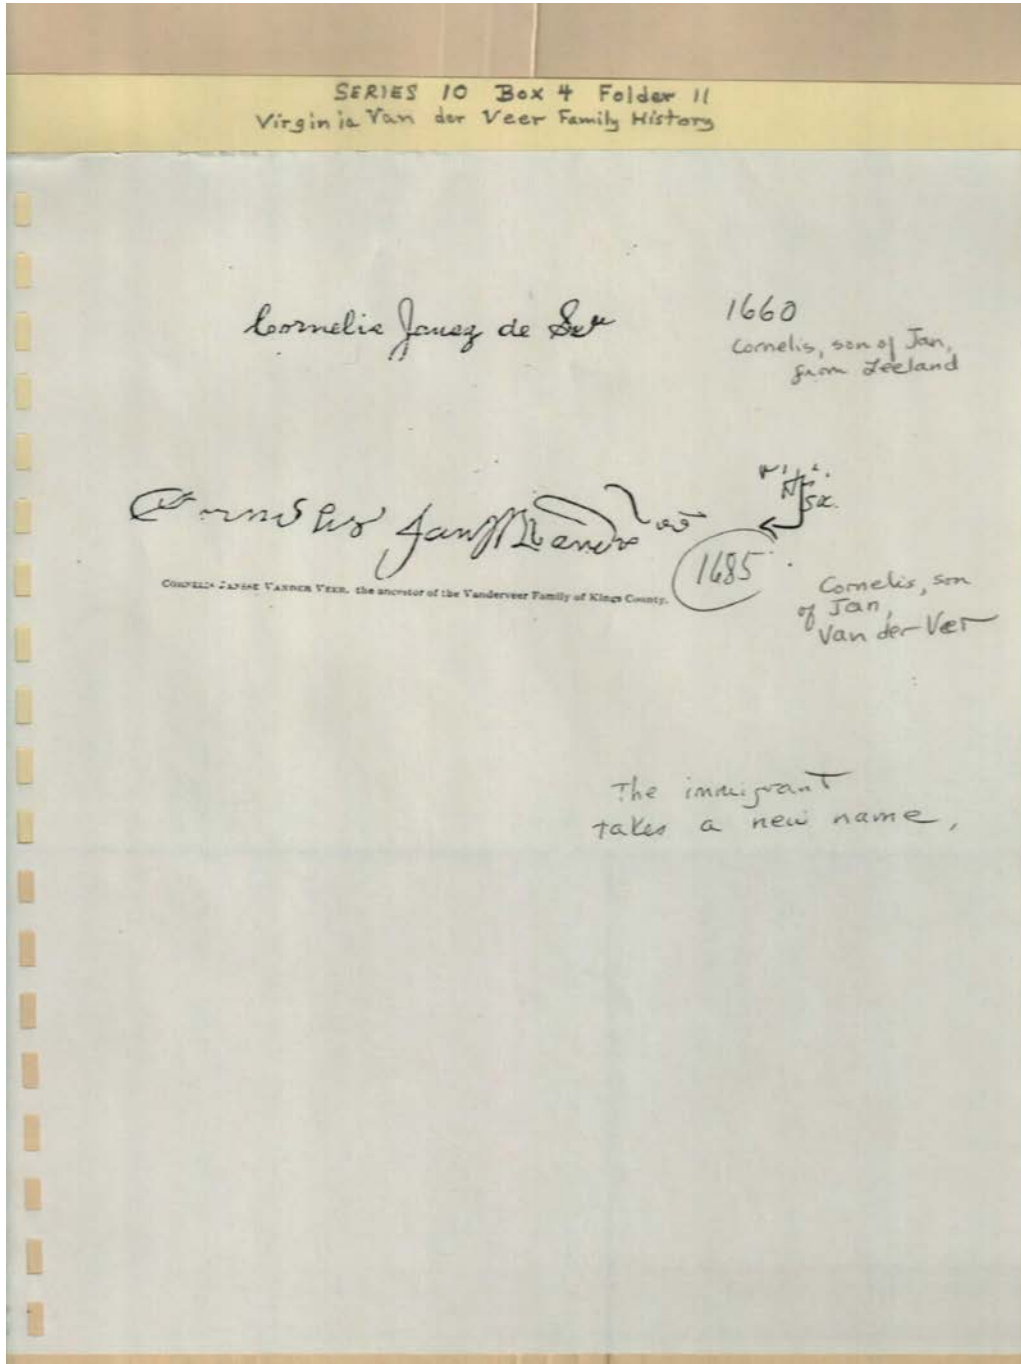 SERIES 10 Box 4 Folder 11
Virginia Van der Veer Family History
Cornelis Jansz de
1660
Cornelis, son of Jan,
from Zeeland
Cornelis Jan Vande
1685
CORNELIS JANSE VANDER VEER, the ancestor of the Vanderveer Family of Kings County.
Cornelis, son
of Jan,
Van der Veer
The immigrant
takes a new name,